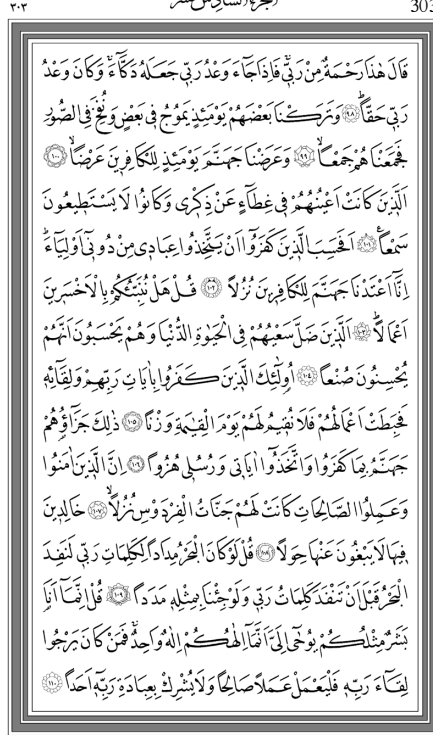 ٣٠٣ الجزء السادس عشر 303
قَالَ هٰذَا رَحْمَةٌ مِنْ رَبّ۪يۚ فَاِذَا جَٓاءَ وَعْدُ رَبّ۪ي جَعَلَهُ دَكَّٓاءَۚ وَكَانَ وَعْدُ
رَبّ۪ي حَقًّاۜ ﴿٩٨﴾ وَتَرَكْنَا بَعْضَهُمْ يَوْمَئِذٍ يَمُوجُ ف۪ي بَعْضٍ وَنُفِخَ فِي الصُّورِ
فَجَمَعْنَاهُمْ جَمْعًاۙ ﴿٩٩﴾ وَعَرَضْنَا جَهَنَّمَ يَوْمَئِذٍ لِلْكَافِر۪ينَ عَرْضًاۙ ﴿١٠٠﴾
اَلَّذ۪ينَ كَانَتْ اَعْيُنُهُمْ ف۪ي غِطَٓاءٍ عَنْ ذِكْر۪ي وَكَانُوا لَا يَسْتَط۪يعُونَ
سَمْعًا۟ ﴿١٠١﴾ اَفَحَسِبَ الَّذ۪ينَ كَفَرُٓوا اَنْ يَتَّخِذُوا عِبَاد۪ي مِنْ دُون۪ٓي اَوْلِيَٓاءَۜ
اِنَّٓا اَعْتَدْنَا جَهَنَّمَ لِلْكَافِر۪ينَ نُزُلًا ﴿١٠٢﴾ قُلْ هَلْ نُنَبِّئُكُمْ بِالْاَخْسَر۪ينَ
اَعْمَالًاۜ ﴿١٠٣﴾ اَلَّذ۪ينَ ضَلَّ سَعْيُهُمْ فِي الْحَيٰوةِ الدُّنْيَا وَهُمْ يَحْسَبُونَ اَنَّهُمْ
يُحْسِنُونَ صُنْعًا ﴿١٠٤﴾ اُو۬لٰٓئِكَ الَّذ۪ينَ كَفَرُوا بِاٰيَاتِ رَبِّهِمْ وَلِقَٓائِه۪
فَحَبِطَتْ اَعْمَالُهُمْ فَلَا نُق۪يمُ لَهُمْ يَوْمَ الْقِيٰمَةِ وَزْنًا ﴿١٠٥﴾ ذٰلِكَ جَزَٓاؤُ۬هُمْ
جَهَنَّمُ بِمَا كَفَرُوا وَاتَّخَذُٓوا اٰيَات۪ي وَرُسُل۪ي هُزُوًا ﴿١٠٦﴾ اِنَّ الَّذ۪ينَ اٰمَنُوا
وَعَمِلُوا الصَّالِحَاتِ كَانَتْ لَهُمْ جَنَّاتُ الْفِرْدَوْسِ نُزُلًاۙ ﴿١٠٧﴾ خَالِد۪ينَ
ف۪يهَا لَا يَبْغُونَ عَنْهَا حِوَلًا ﴿١٠٨﴾ قُلْ لَوْ كَانَ الْبَحْرُ مِدَادًا لِكَلِمَاتِ رَبّ۪ي لَنَفِدَ
الْبَحْرُ قَبْلَ اَنْ تَنْفَدَ كَلِمَاتُ رَبّ۪ي وَلَوْ جِئْنَا بِمِثْلِه۪ مَدَدًا ﴿١٠٩﴾ قُلْ اِنَّمَٓا اَنَا۬
بَشَرٌ مِثْلُكُمْ يُوحٰٓى اِلَيَّ اَنَّمَٓا اِلٰهُكُمْ اِلٰهٌ وَاحِدٌۚ فَمَنْ كَانَ يَرْجُوا
لِقَٓاءَ رَبِّه۪ فَلْيَعْمَلْ عَمَلًا صَالِحًا وَلَا يُشْرِكْ بِعِبَادَةِ رَبِّه۪ٓ اَحَدًا ﴿١١٠﴾